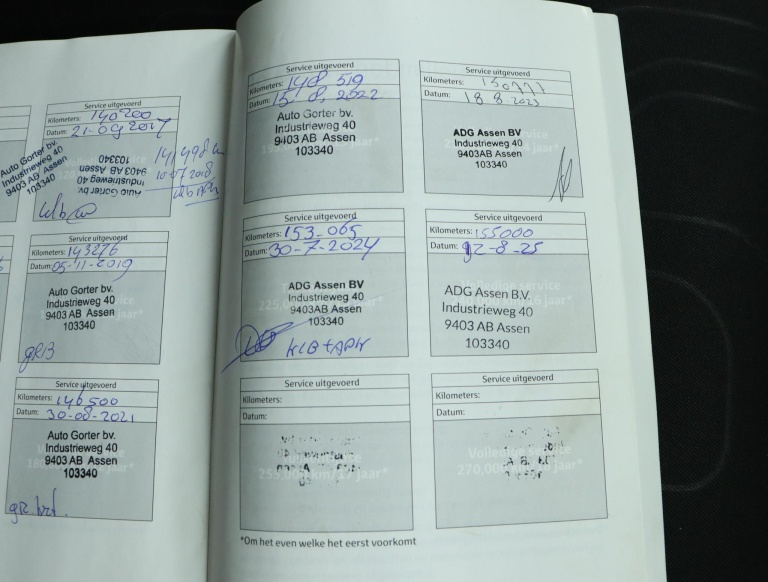 Service uitgevoerd
Kilometers: 140200
Datum: 21-09-2017
Auto Gorter bv.
Industrieweg 40
9403 AB Assen
103340
Auto Gorter bv.
Industrieweg 40
9403 AB Assen
103340
141498
10-07-2018
Service uitgevoerd
Kilometers: 143276
Datum: 05-11-2019
Auto Gorter bv.
Industrieweg 40
9403 AB Assen
103340
Service uitgevoerd
Kilometers: 146500
Datum: 30-08-2021
Auto Gorter bv.
Industrieweg 40
9403 AB Assen
103340
Service uitgevoerd
Kilometers: 148 519
Datum: 15-8-2022
Auto Gorter bv.
Industrieweg 40
9403 AB Assen
103340
Service uitgevoerd
Kilometers: 150777
Datum: 18 8 2023
ADG Assen BV
Industrieweg 40
9403AB Assen
103340
Service uitgevoerd
Kilometers: 153-065
Datum: 30-7-2024
ADG Assen BV
Industrieweg 40
9403AB Assen
103340
KLB + APK
Service uitgevoerd
Kilometers: 155000
Datum: 12-8-25
ADG Assen B.V.
Industrieweg 40
9403 AB Assen
103340
Service uitgevoerd
Kilometers:
Datum:
255,000 km/17 jaar*
Service uitgevoerd
Kilometers:
Datum:
Volledige service
270,000
*Om het even welke het eerst voorkomt